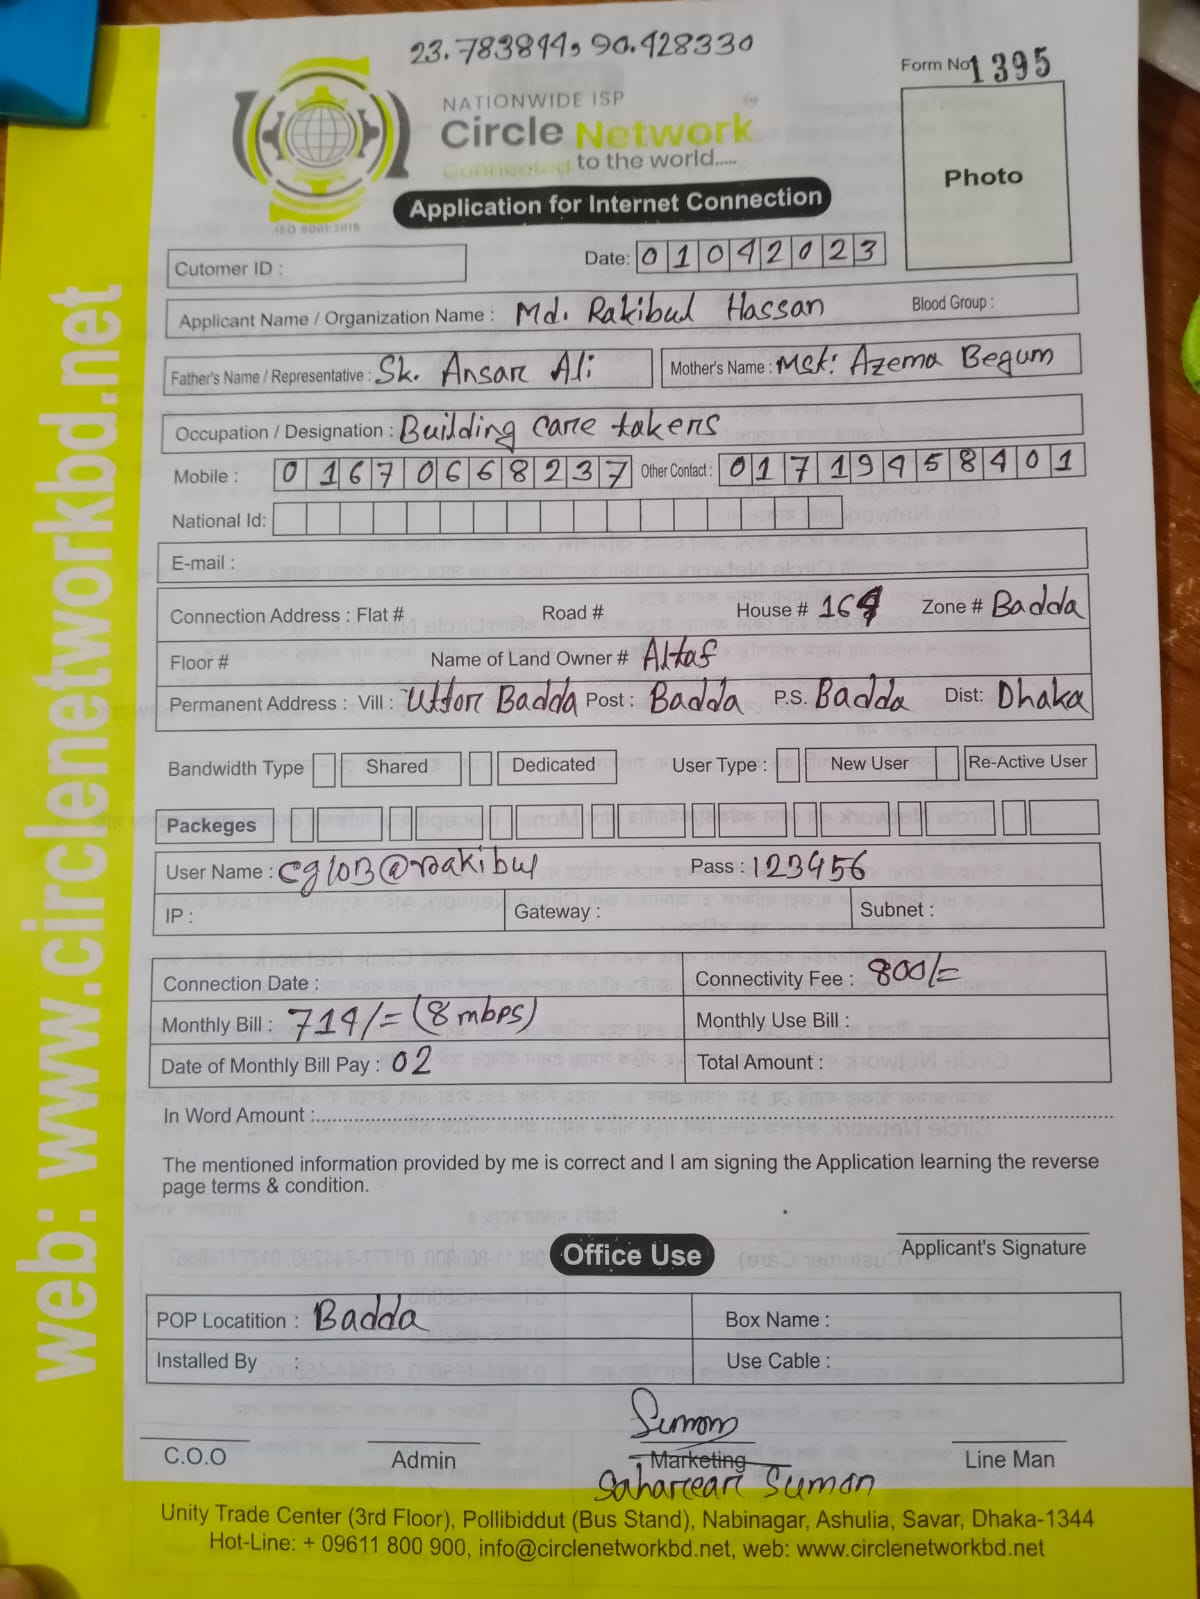 23.783844, 90.428330
Form No 1395
NATIONWIDE ISP
Circle Network
Connected to the world.....
ISO 9001:2015
Application for Internet Connection
Photo
Cutomer ID :
Date: 01042023
Applicant Name / Organization Name : Md. Rakibul Hassan Blood Group :
Father's Name / Representative : Sk. Ansar Ali Mother's Name : Mst: Azema Begum
Occupation / Designation : Building care takers
Mobile : 01670668237 Other Contact : 01719458401
National Id:
E-mail :
Connection Address : Flat # Road # House # Zone # Badda
Floor # Name of Land Owner # Altaf
Permanent Address : Vill : Uttor Badda Post : Badda P.S. Badda Dist: Dhaka
Bandwidth Type Shared Dedicated User Type : New User Re-Active User
Packeges
User Name : cglOB@rakibul Pass : 123456
IP : Gateway : Subnet :
Connection Date : Connectivity Fee : 800/=
Monthly Bill : 714/= (8 mbps) Monthly Use Bill :
Date of Monthly Bill Pay : 02 Total Amount :
In Word Amount :
The mentioned information provided by me is correct and I am signing the Application learning the reverse
page terms & condition.
Applicant's Signature
Office Use
POP Locatition : Badda Box Name :
Installed By : Use Cable :
Sumon
C.O.O Admin Marketing Line Man
Saharear Suman
Unity Trade Center (3rd Floor), Pollibiddut (Bus Stand), Nabinagar, Ashulia, Savar, Dhaka-1344
Hot-Line: + 09611 800 900, info@circlenetworkbd.net, web: www.circlenetworkbd.net
web: www.circlenetworkbd.net